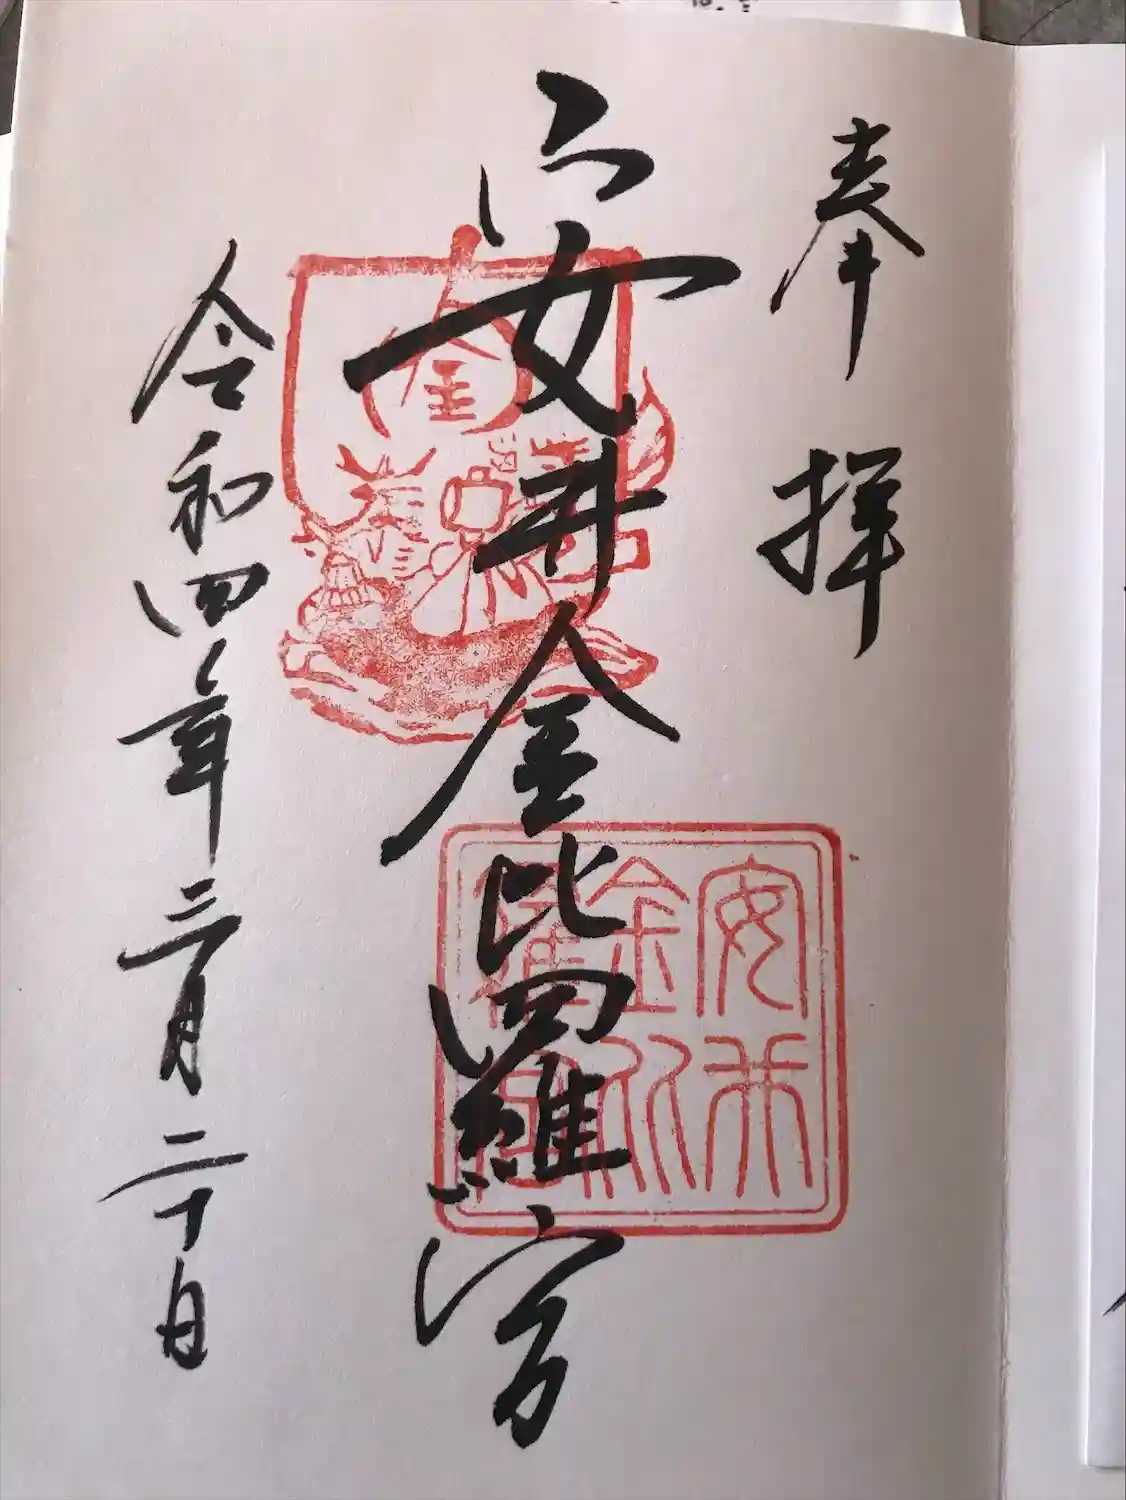 奉拝
安井金比羅宮
令和四年三月二十日
金
安井
金比
羅宮